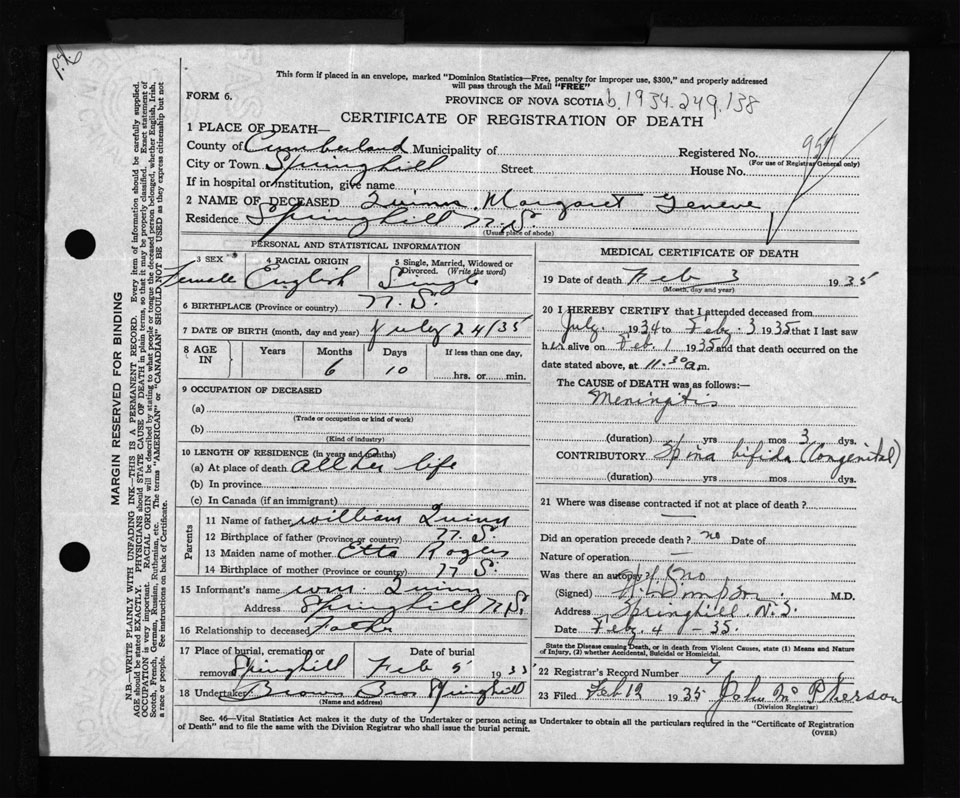 This form if placed in an envelope, marked "Dominion Statistics—Free, penalty for improper use, $300," and properly addressed
will pass through the Mail "FREE"
FORM 6.
PROVINCE OF NOVA SCOTIA b.1934.249.138
CERTIFICATE OF REGISTRATION OF DEATH
1 PLACE OF DEATH—
County of Cumberland Municipality of Registered No.
(For use of Registrar General only)
City or Town Springhill Street House No.
If in hospital or institution, give name
2 NAME OF DECEASED Quinn, Margaret Geneve
Residence Springhill N.S.
(Usual place of abode)
PERSONAL AND STATISTICAL INFORMATION
3 SEX Female
4 RACIAL ORIGIN English
5 Single, Married, Widowed or Divorced. (Write the word) Single
6 BIRTHPLACE (Province or country) N.S.
7 DATE OF BIRTH (month, day and year) July 24/35
8 AGE IN Years Months Days If less than one day,
6 10 hrs. or min.
9 OCCUPATION OF DECEASED
(a)
(Trade or occupation or kind of work)
(b)
(Kind of industry)
10 LENGTH OF RESIDENCE (in years and months)
(a) At place of death all her life
(b) In province
(c) In Canada (if an immigrant)
Parents
11 Name of father William Quinn
12 Birthplace of father (Province or country) N.S.
13 Maiden name of mother Etta Rogers
14 Birthplace of mother (Province or country) N.S.
15 Informant's name Wm. Quinn
Address Springhill N.S.
16 Relationship to deceased Father
17 Place of burial, cremation or removal Springhill Date of burial Feb 5 1935
18 Undertaker Brown Bros Springhill
(Name and address)
MEDICAL CERTIFICATE OF DEATH
19 Date of death Feb 3 1935
(Month, day and year)
20 I HEREBY CERTIFY that I attended deceased from
July. 1934 to Feb. 3 1935 that I last saw
her alive on Feb. 1 1935 and that death occurred on
date stated above, at 11.30 a.m.
The CAUSE OF DEATH was as follows:—
Meningitis
(duration) yrs mos 3 dys.
CONTRIBUTORY Spina bifida (Congenital)
(duration) yrs mos dys.
21 Where was disease contracted if not at place of death?
—
Did an operation precede death? no Date of
Nature of operation —
Was there an autopsy? no
(Signed) Simpson M.D.
Address Springhill. N.S.
Date Feb. 4 - 35.
State the Disease causing Death, or in death from Violent Causes, state (1) Means and Nature
of Injury, (2) whether Accidental, Suicidal or Homicidal.
22 Registrar's Record Number 7
23 Filed Feb 12 1935 John McPherson
(Division Registrar)
Sec. 46—Vital Statistics Act makes it the duty of the Undertaker or person acting as Undertaker to obtain all the particulars required in the "Certificate of Registration
of Death" and to file the same with the Division Registrar who shall issue the burial permit.
(OVER)
MARGIN RESERVED FOR BINDING
N.B.—WRITE PLAINLY WITH UNFADING INK—THIS IS A PERMANENT RECORD. Every item of information should be carefully supplied.
AGE should be stated EXACTLY. PHYSICIANS should STATE CAUSE OF DEATH in plain terms, so that it may be properly classified. Exact statement of
OCCUPATION is very important. RACIAL ORIGIN will be described by stating to what people or tongue the deceased person belonged, whether English, Irish,
Scotch, French, German, Russian, Ruthenian, etc. The terms "AMERICAN" or "CANADIAN" SHOULD NOT BE USED as they express citizenship but not
a race or people. See instructions on back of Certificate.